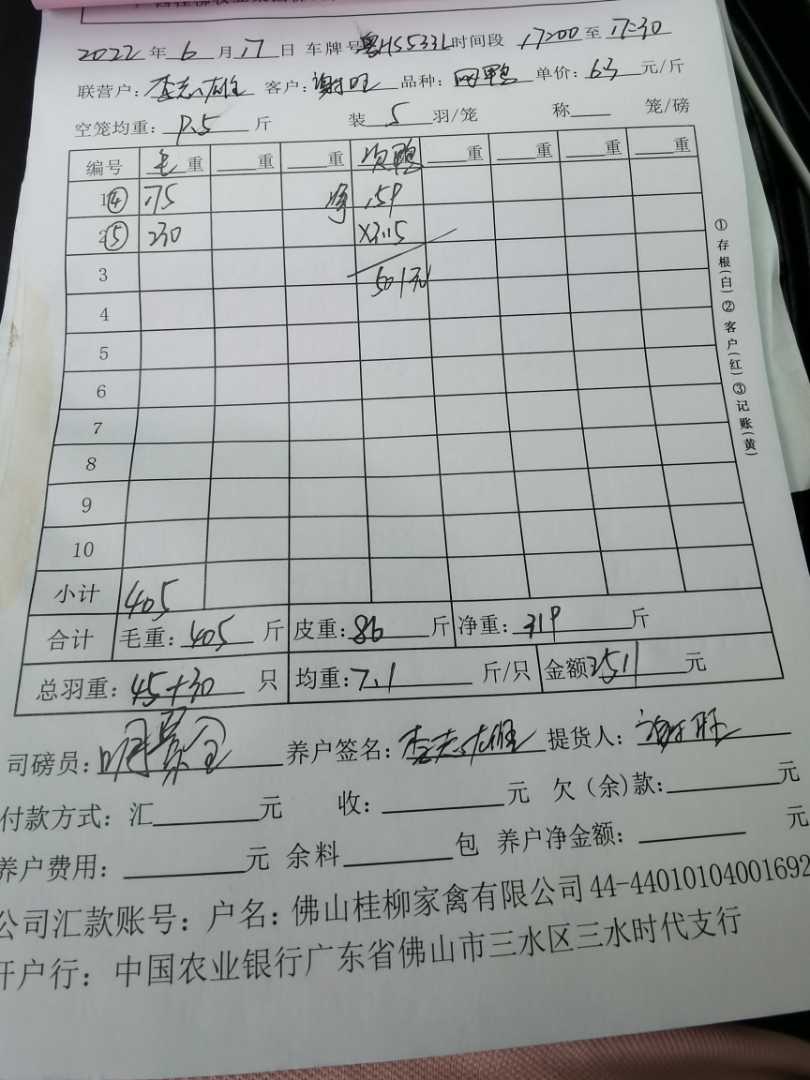 2022年6月17日 车牌号粤HS533L时间段17:00至17:30
联营户:李志雄 客户:谢旺 品种: 单价:6.3元/斤
空笼均重:9.5斤 装5羽/笼 称 笼/磅
编号 毛重 重 重 次鸭 重 重 重 重
1 ④ 175 净 159
2 ⑤ 230 ×3.15
3 501元
4
5
6
7
8
9
10
小计 405
合计 毛重:405斤 皮重:86斤 净重:319斤
总羽重:45+30只 均重:7.1斤/只 金额2511元
司磅员: 养户签名:李志雄 提货人:谢旺
付款方式:汇 元 收: 元 欠(余)款: 元
养户费用: 元 余料 包 养户净金额: 元
公司汇款账号:户名:佛山桂柳家禽有限公司44-44010104001692
开户行:中国农业银行广东省佛山市三水区三水时代支行
①存根(白)②客户(红)③记账(黄)